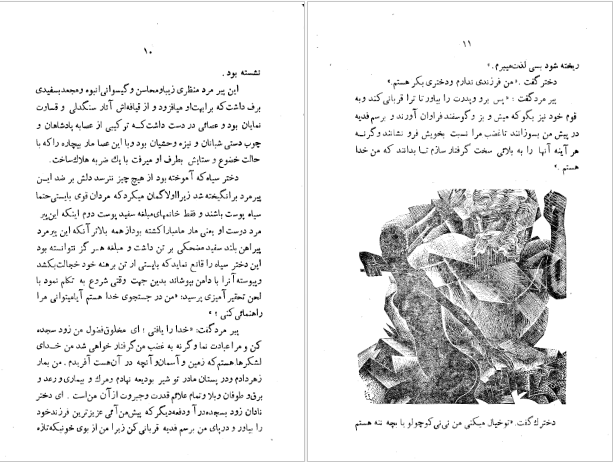 ۱۰
نشسته بود .
این پیر مرد منظری زیبا ومحاسن و گیسوانی انبوه و مجعد بسفیدی
برف داشت که برابهت او میافزود و از قیافه‌اش آثار سنگدلی و قساوت
نمایان بود و عصائی در دست داشت که ترکیبی از عصابه پادشاهان و
چوب دستی شبانان و نیزه وحشیان بود وبا این عصا مار بیچاره را که با
حالت خضوع و ستایش بطرف او میرفت با یك ضربه هلاك ساخت.
دختر سیاه که آموخته بود از هیچ چیز نترسد دلش بر ضد این
پیرمرد برانگیخته شد زیرا اولا گمان میکرد که مردان قوی بایستی حتما
سیاه پوست باشند و فقط خانمهای مبلغه سفید پوست دوم اینکه این پیر
مرد دوست او یعنی مار مامبا را کشته بود از همه بالاتر آنکه این پیر مرد
پیراهن بلند سفید مضحکی بر تن داشت و مبلغه هرگز نتوانسته بود
این دختر سیاه را قانع نماید که بایستی از تن برهنه خود خجالت بکشد
و پیوسته آنرا با دامن بپوشاند بدین جهت وقتی شروع به تکلم نمود با
لحن تحقیر آمیزی پرسید: «من در جستجوی خدا هستم آیا میتوانی مرا
راهنمائی کنی ؟ »
پیر مرد گفت: «خدا را یافتی ! ای مخلوق فضول من زود سجده
کن و مرا عبادت نما و گرنه به غضب من گرفتار خواهی شد من خدای
لشکرها هستم که زمین و آسمان و آنچه در آن هست آفریدم . من بمار
زهر دادم و در پستان مادر تو شیر بودیعه نهادم و مرك و بیماری و رعد و
برق و طوفان و بلا و تمام علائم قدرت و جبروت از آن من است . ای دختر
نادان زود بسجده در آ و دفعه دیگر که پیش من آمی عزیزترین فرزند خود
را بیاور و در پای من برسم فدیه قربانی کن زیرا من از بوی خونیکه تازه
۱۱
ریخته شود بسی لذت میبرم . »
دختر گفت . «من فرزندی ندارم و دختری بکر هستم.»
پیر مرد گفت : « پس برو و پدرت را بیاور تا ترا قربانی کند و به
قوم خود نیز بگو که میش و بز و گوسفند فراوان آورند و برسم فدیه
در پیش من بسوزانند تا غضب مرا نسبت بخویش فرو نشانند و گرنه
هر آینه آنها را به بلائی سخت گرفتار سازم تا بدانند که من خدا
هستم . »
دخترك گفت. «تو خیال میکنی من نی نی کوچولو یا بچه ننه هستم